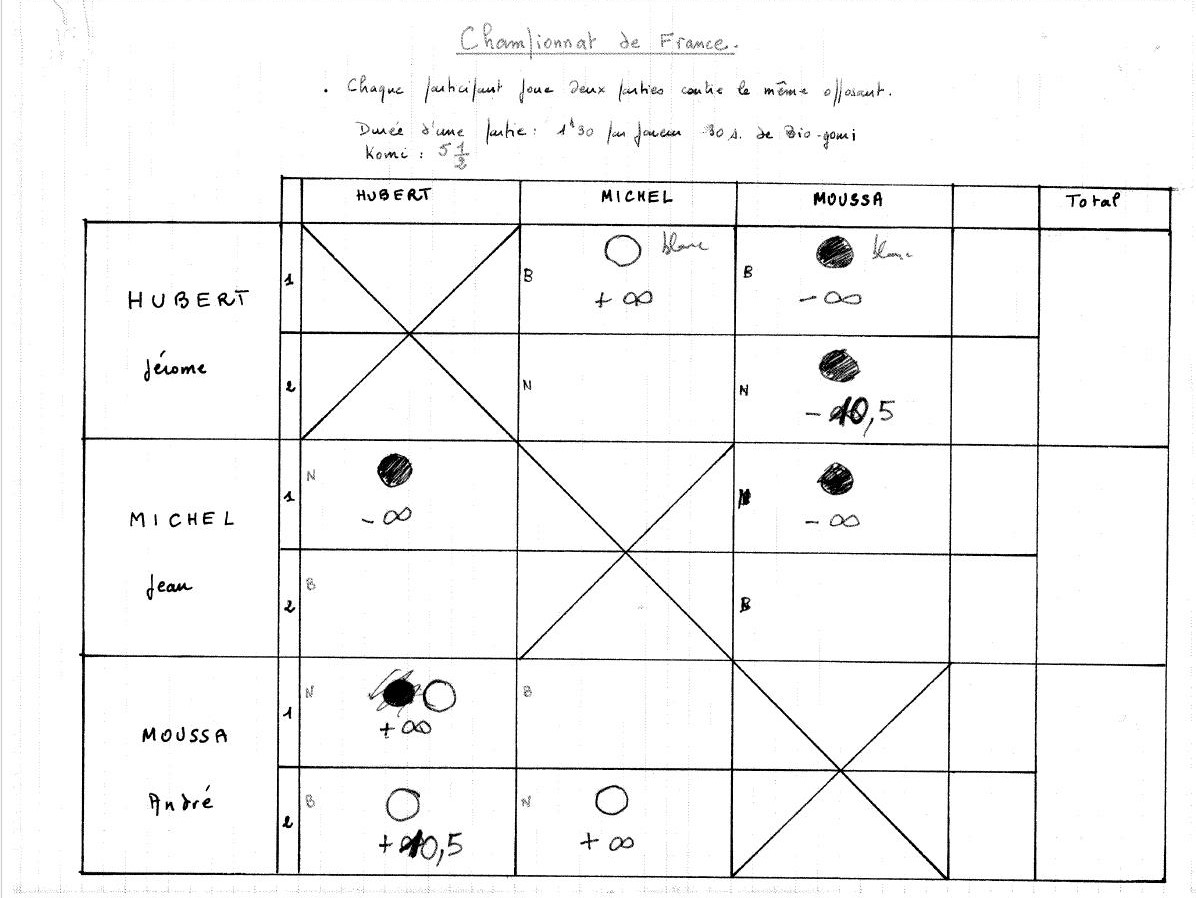 Championnat de France.
. Chaque participant joue Deux parties contre le même opposant.
Durée d'une partie : 1h30 par joueur 30 s. de Bio-yomi
Komi : 5 1/2
HUBERT MICHEL MOUSSA Total
HUBERT Jérome
1 B blanc + ∞ B blanc - ∞
2 N N - 10,5
MICHEL Jean
1 N - ∞ - ∞
2 B B
MOUSSA André
1 N + ∞ B
2 B + 10,5 N + ∞